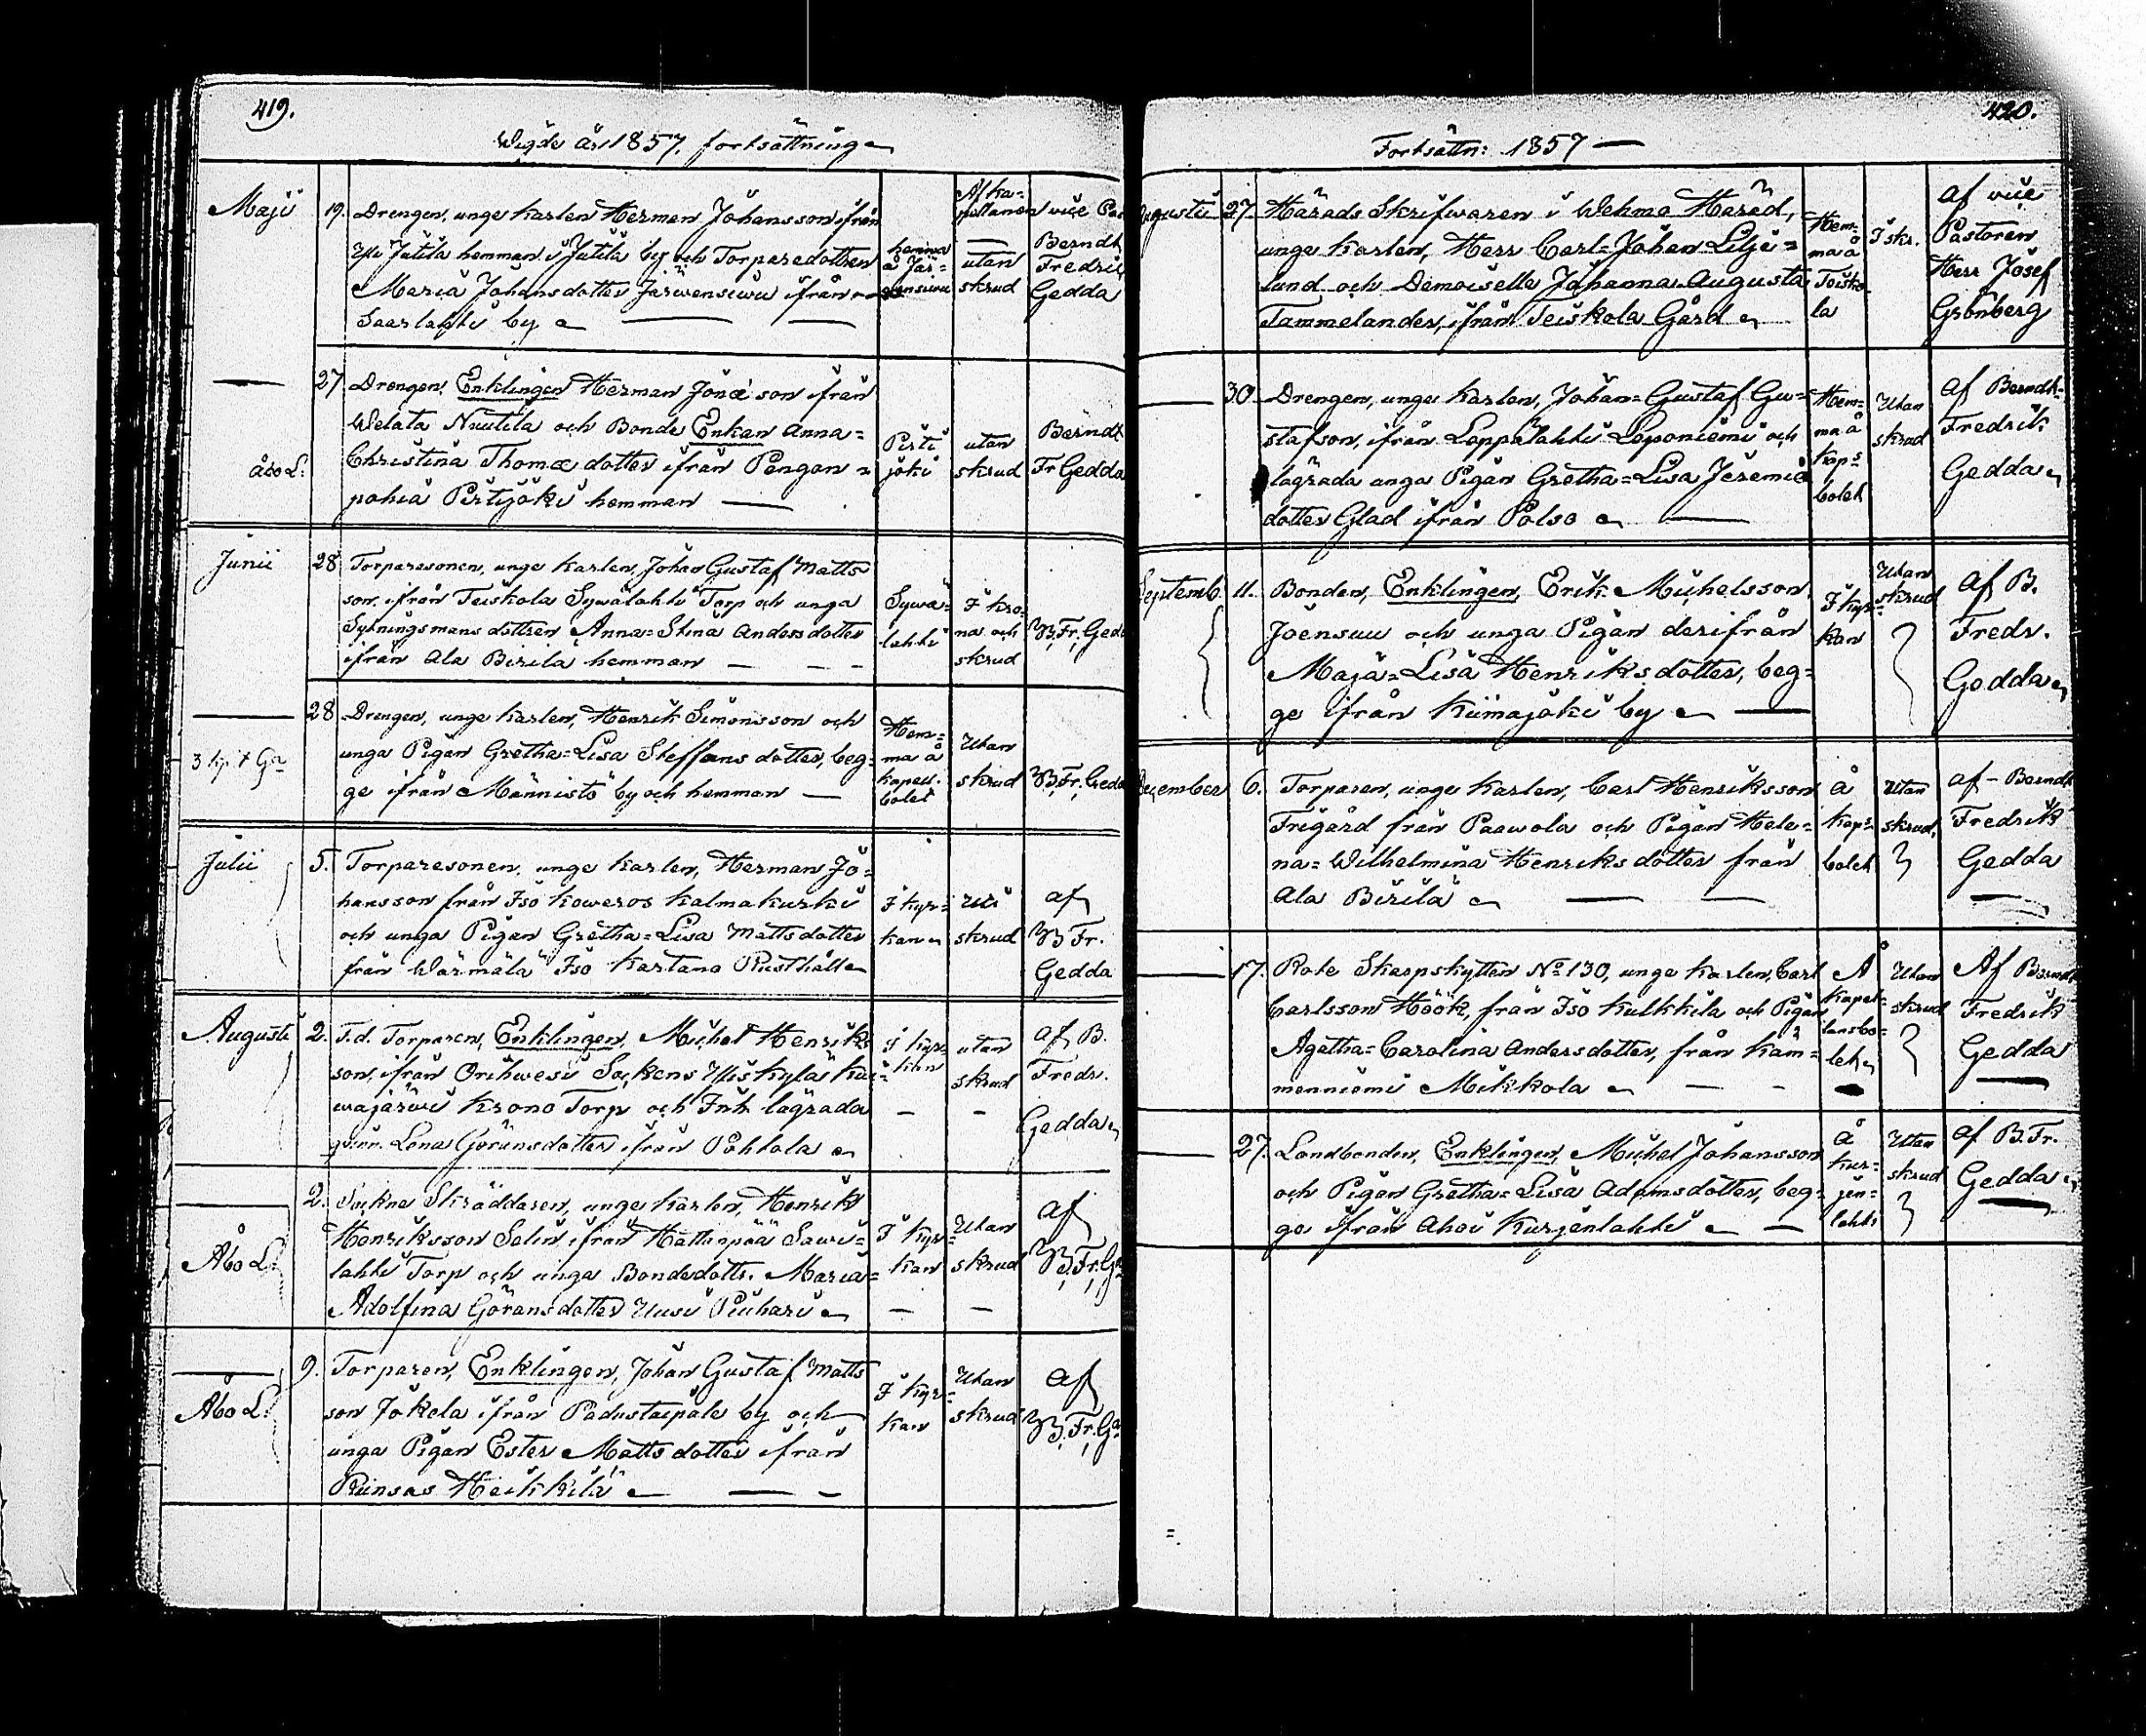 419.
Wigde år 1857. fortsättning
Maji 19. Drengen, unge Karlen Herman Johansson ifrån
Yli Jutila hemman i Jutila by och Torparedottren
Maria Johansdotter Järwensiwu ifrån
Saarlahti by
hemma å Jär=
wensiwu
Af Ka=
pellanen vice Pas
utan
skrud
Berndt
Fredric
Gedda
27. Drengen, Enklingen Herman Jonæ son ifrån
Welata Nuutila och Bonde Enkan Anna=
Christina Thomæ dotter ifrån Pengon=
pohia Pirtijoki hemman
Åbo L:
Pirti
joki
utan
skrud
Berndt
Fr Gedda
Junii 28 Torparesonen, unge Karlen, Johan Gustaf Matts
son, ifrån Teiskola Sywälahti Torp och unga
Sytningsmans dottren Anna=Stina Anders dotter
ifrån Ala Birila hemman
Sywä=
lahti
I kro=
na och
skrud
B, Fr, Gedd
28 Drengen, unge Karlen, Henrik Simonsson och
unga Pigan Gretha=Lisa Steffans dotter, beg=
ge ifrån Männistö by och hemman
Hem=
ma å
Kapell.
bolet
Utan
skrud
B, Fr, Gedda
Julii 5. Torparesonen, unge Karlen, Herman Jo=
hansson från Iso Koweros Kalmakurki
och unga Pigan Gretha=Lisa Matts dotter
från Wärmälä Iso Kartano Rusthåll
I kyr=
kan
Uti
skrud
af
B Fr.
Gedda
Augusti 2. F.d. Torparen, Enklingen, Michel Henriks
son, ifrån Orihwesi Sockens
Krono Torp och Inh. lägrada
qvinn. Lena Görans dotter ifrån Pohtola
i kyr=
kan
utan
skrud
af B.
Fredr.
Gedda
2. Sockne Skräddaren, unge Karlen, Henrik
Henriksson Salin, ifrån Hattanpää Sawi=
lahti Torp och unga Bondedottr. Maria=
Adolfina Görans dotter Uusi Piuhari
Åbo L.
I kyr=
kan
Utan
skrud
af
B. Fr. Ga
9. Torparen, Enklingen, Johan Gustaf Matts
son Jokela ifrån Padustaipale by och
unga Pigan Ester Matts dotter ifrån
Kunsas Heikkilä
Åbo L.
I kyr=
kan
Utan
skrud
af
B. Fr. Ga
420.
Fortsättn: 1857
Augusti 27. Härads Skrifwaren i Wehmo Härad,
unge Karlen, Herr Carl=Johan Lilje=
lund och Demoiselle Johanna Augusta
Tammelander, ifrån Teiskola Gård
Hem=
ma å
Teisko
la
I skr.
af vice
Pastoren
Herr Josef
Grönberg
30. Drengen, unge Karlen, Johan=Gustaf Gu=
stafson, ifrån Loppalahti Loponiemi och
lägrada unga Pigan Gretha=Lisa Jeremiæ
dotter Glad ifrån Polso
Hem=
ma å
Kaps
bolet
Utan
skrud
af Berndt
Fredrik
Gedda
Septemb. 11. Bonden, Enklingen, Erik Michelsson
Joensuu och unga Pigan derifrån
Maja=Lisa Henriks dotter, beg=
ge ifrån Kiimajoki by
I kyr=
kan
Utan
skrud
af B.
Fredr.
Gedda
December 6. Torparen, unge Karlen, Carl Henriksson
Frigård från Paawola och Pigan Hele=
na=Wilhelmina Henriks dotter från
Ala Birilä
å
Kaps
bolet
utan
skrud,
af Berndt
Fredrik
Gedda
17. Rote Skarpskytten No 130, unge Karlen, Carl
Carlsson Höök, från Iso Kulkkila och Pigan
Agatha=Carolina Andersdotter, från Käm=
menniemi Mikkola
Å
Kapel=
lansbo=
let
Utan
skrud
Af Berndt
Fredrik
Gedda
27. Landbonden, Enklingen, Michel Johansson
och Pigan Gretha=Lisa Adamsdotter, beg=
ge ifrån Ahoi Kurjenlahti
å
Kur=
jen=
lahti
Utan
skrud
af B. Fr.
Gedda